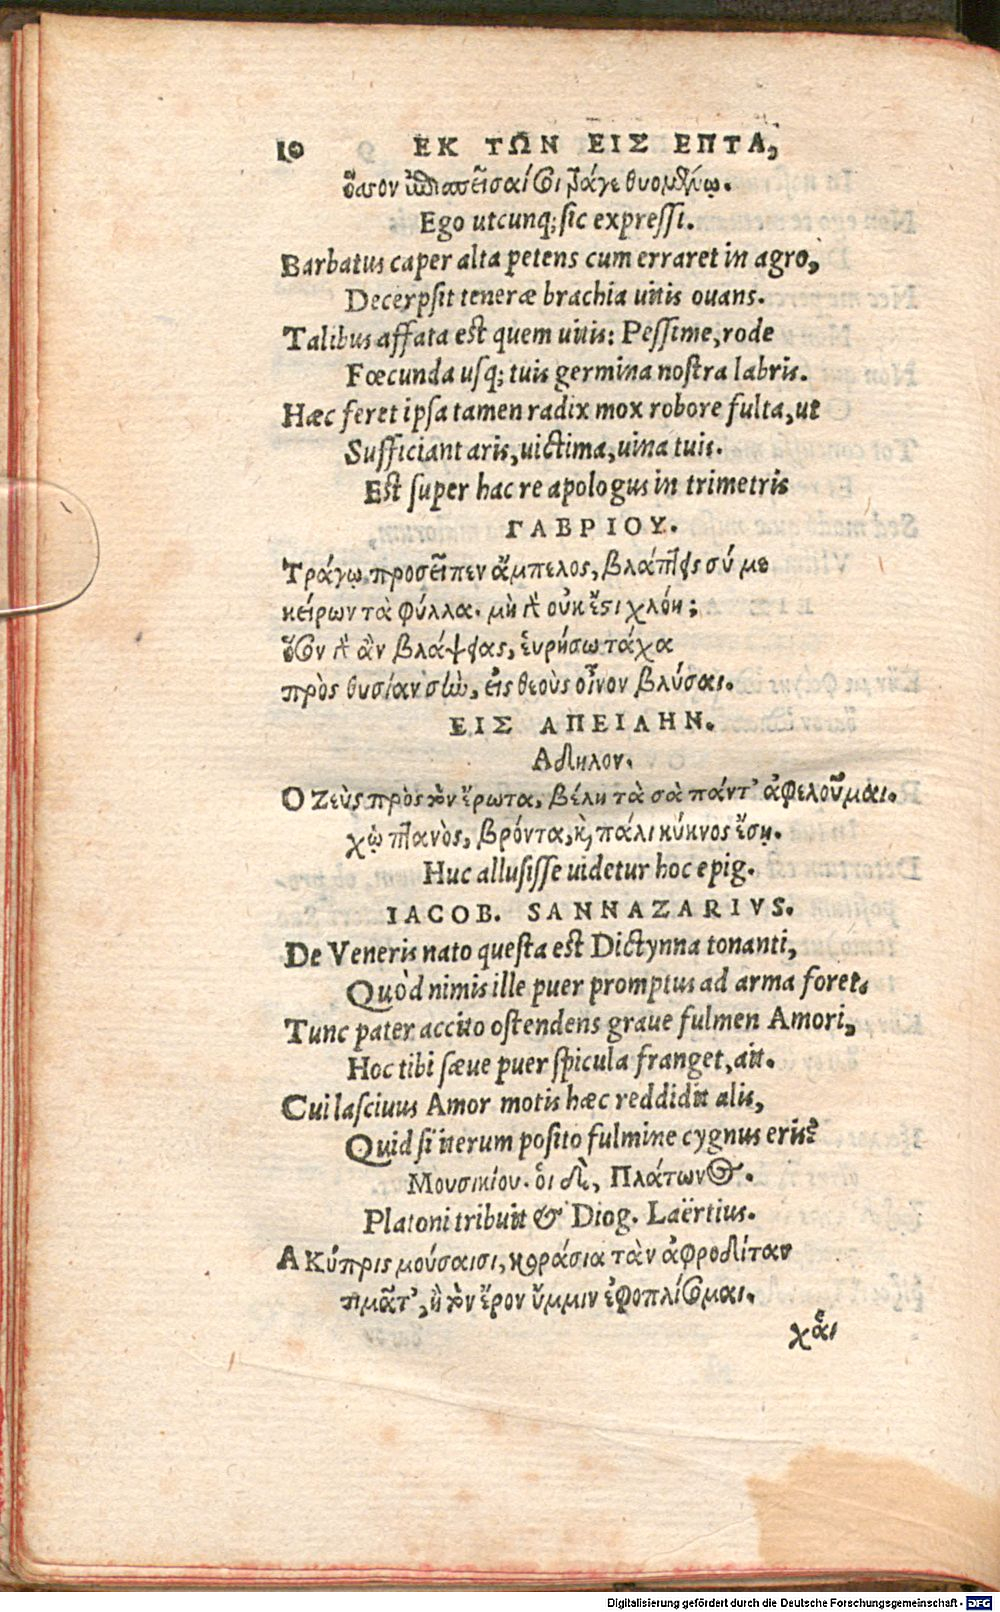 10 ΕΚ ΤΩΝ ΕΙΣ ΕΠΤΑ,
ὅσσον ἐπισπεῖσαί σοι τράγε θυομένῳ.
Ego utcunq; sic expressi.
Barbatus caper alta petens cum erraret in agro,
Decerpsit teneræ brachia uitis ouans.
Talibus affata est quem uitis: Pessime, rode
Fœcunda usq; tuis germina nostra labris.
Hæc feret ipsa tamen radix mox robore fulta, ut
Sufficiant aris, uictima, uina tuis.
Est super hac re apologus in trimetris
ΓΑΒΡΙΟΥ.
Τράγῳ προσεῖπεν ἄμπελος, βλάπτεις σύ με
κείρων τὰ φύλλα. μὴ γὸ οὐκ ἔστι χλόη;
ὅσον γὸ ἂν βλάψῃας, εὑρήσω τάχα
πρὸς θυσίαν σὴν, εἰς θεοὺς οἶνον βλύσαι.
ΕΙΣ ΑΠΕΙΛΗΝ.
Αδηλον.
Ο Ζεὺς πρὸς τὸν ἔρωτα, βέλη τὰ σὰ πάντ’ ἀφελοῦμαι.
χὠ πτανὸς, βρόντα, καὶ πάλι κύκνος ἔσῃ.
Huc allusisse uidetur hoc epig.
IACOB. SANNAZARIVS.
De Veneris nato questa est Dictynna tonanti,
Quòd nimis ille puer promptus ad arma foret.
Tunc pater accito ostendens graue fulmen Amori,
Hoc tibi sæue puer spicula franget, ait.
Cui lasciuus Amor motis hæc reddidit alis,
Quid si iterum posito fulmine cygnus eris?
Μουσικίου. οἱ δὲ, Πλάτωνος.
Platoni tribuit & Diog. Laërtius.
Α Κύπρις μούσαισι, κοράσια τὰν ἀφροδίταν
τιμᾶτ’, ἢ τὸν ἔρον ὔμμιν ἐφοπλίσομαι.
χαἱ
Digitalisierung gefördert durch die Deutsche Forschungsgemeinschaft - DFG